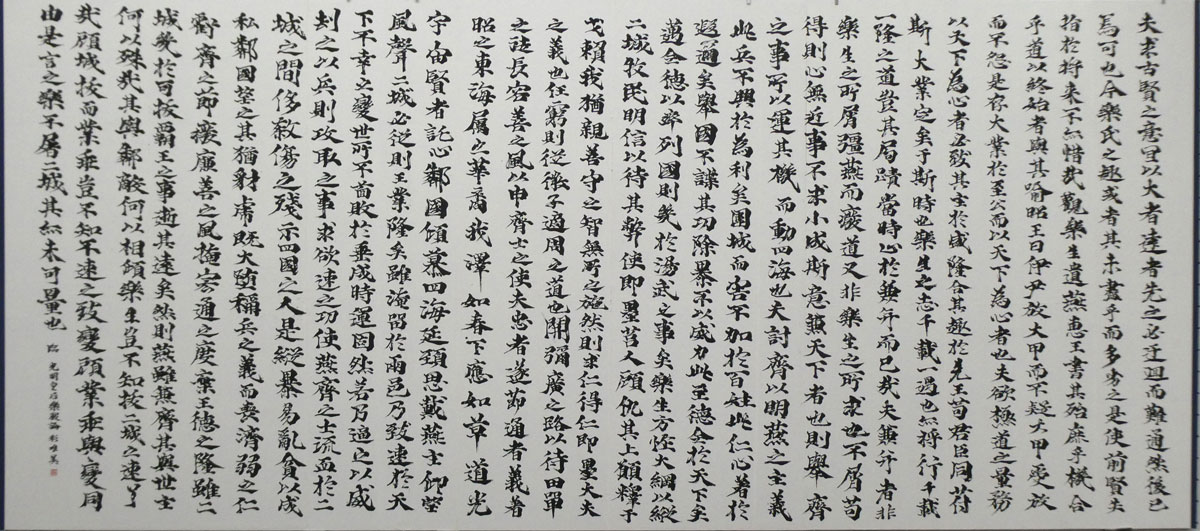 夫求古賢之意宜以大者遠者先之必迂迴而難通然後已
焉可也今樂氏之趣或者其未盡乎而多劣之是使前賢失
指於将来不亦惜哉觀樂生遺燕惠王書其殆庶乎機合
乎道以終始者與其喻昭王曰伊尹放大甲而不疑大甲受放
而不怨是存大業於至公而以天下為心者也夫欲極道之量務
以天下為心者必致其主於盛隆合其趣於先王苟君臣同符
斯大業定矣于斯時也樂生之志千載一遇也亦将行千載
一隆之道豈其局蹟當時止於兼并而已哉夫兼并者非
樂生之所屑彊燕而廢道又非樂生之所求也不屑苟
得則心無近事不求小成斯意兼天下者也則舉齊
之事所以運其機而動四海也夫討齊以明燕之主義
此兵不興於為利矣圍城而害不加於百姓此仁心著於
遐邇矣舉國不謀其功除暴不以威力此至德全於天下矣
邁全德以率列國則幾於湯武之事矣樂生方恢大綱以縱
二城牧民明信以待其弊使即墨莒人顧仇其上願釋干
戈賴我猶親善守之智無所之施然則求仁得仁即墨大夫
之義也任窮則從微子適周之道也開彌廣之路以待田單
之徒長容善之風以申齊士之使夫忠者遂節通者義著
昭之東海屬之華裔我澤如春下應如草道光
宇宙賢者託心鄰國傾慕四海延頸思戴燕主仰望
風聲二城必從則王業隆矣雖淹留於兩邑乃致速於天
下不幸之變世所不啚敗於垂成時運固然若乃逼之以威
刼之以兵則攻取之事求欲速之功使燕齊之士流血於二
城之間侈殺傷之殘示四國之人是縱暴易亂貪以成
私鄰國望之其猶豺虎既大墮稱兵之義而喪濟弱之仁
虧齊之節癈廉善之風掩宏通之度棄王德之隆雖二
城幾於可拔霸王之事逝其遠矣然則燕雖兼齊其與世主
何以殊哉其與鄰敵何以相傾樂生豈不知拔二城之速了
哉顧城拔而業乖豈不知不速之致變顧業乖與變同
由是言之樂不屠二城其亦未可量也
臨 光明皇后樂毅論